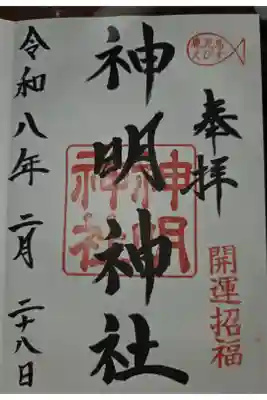 奉拝
開運招福
神明神社
神明
神社
令和八年 二月 二十八日